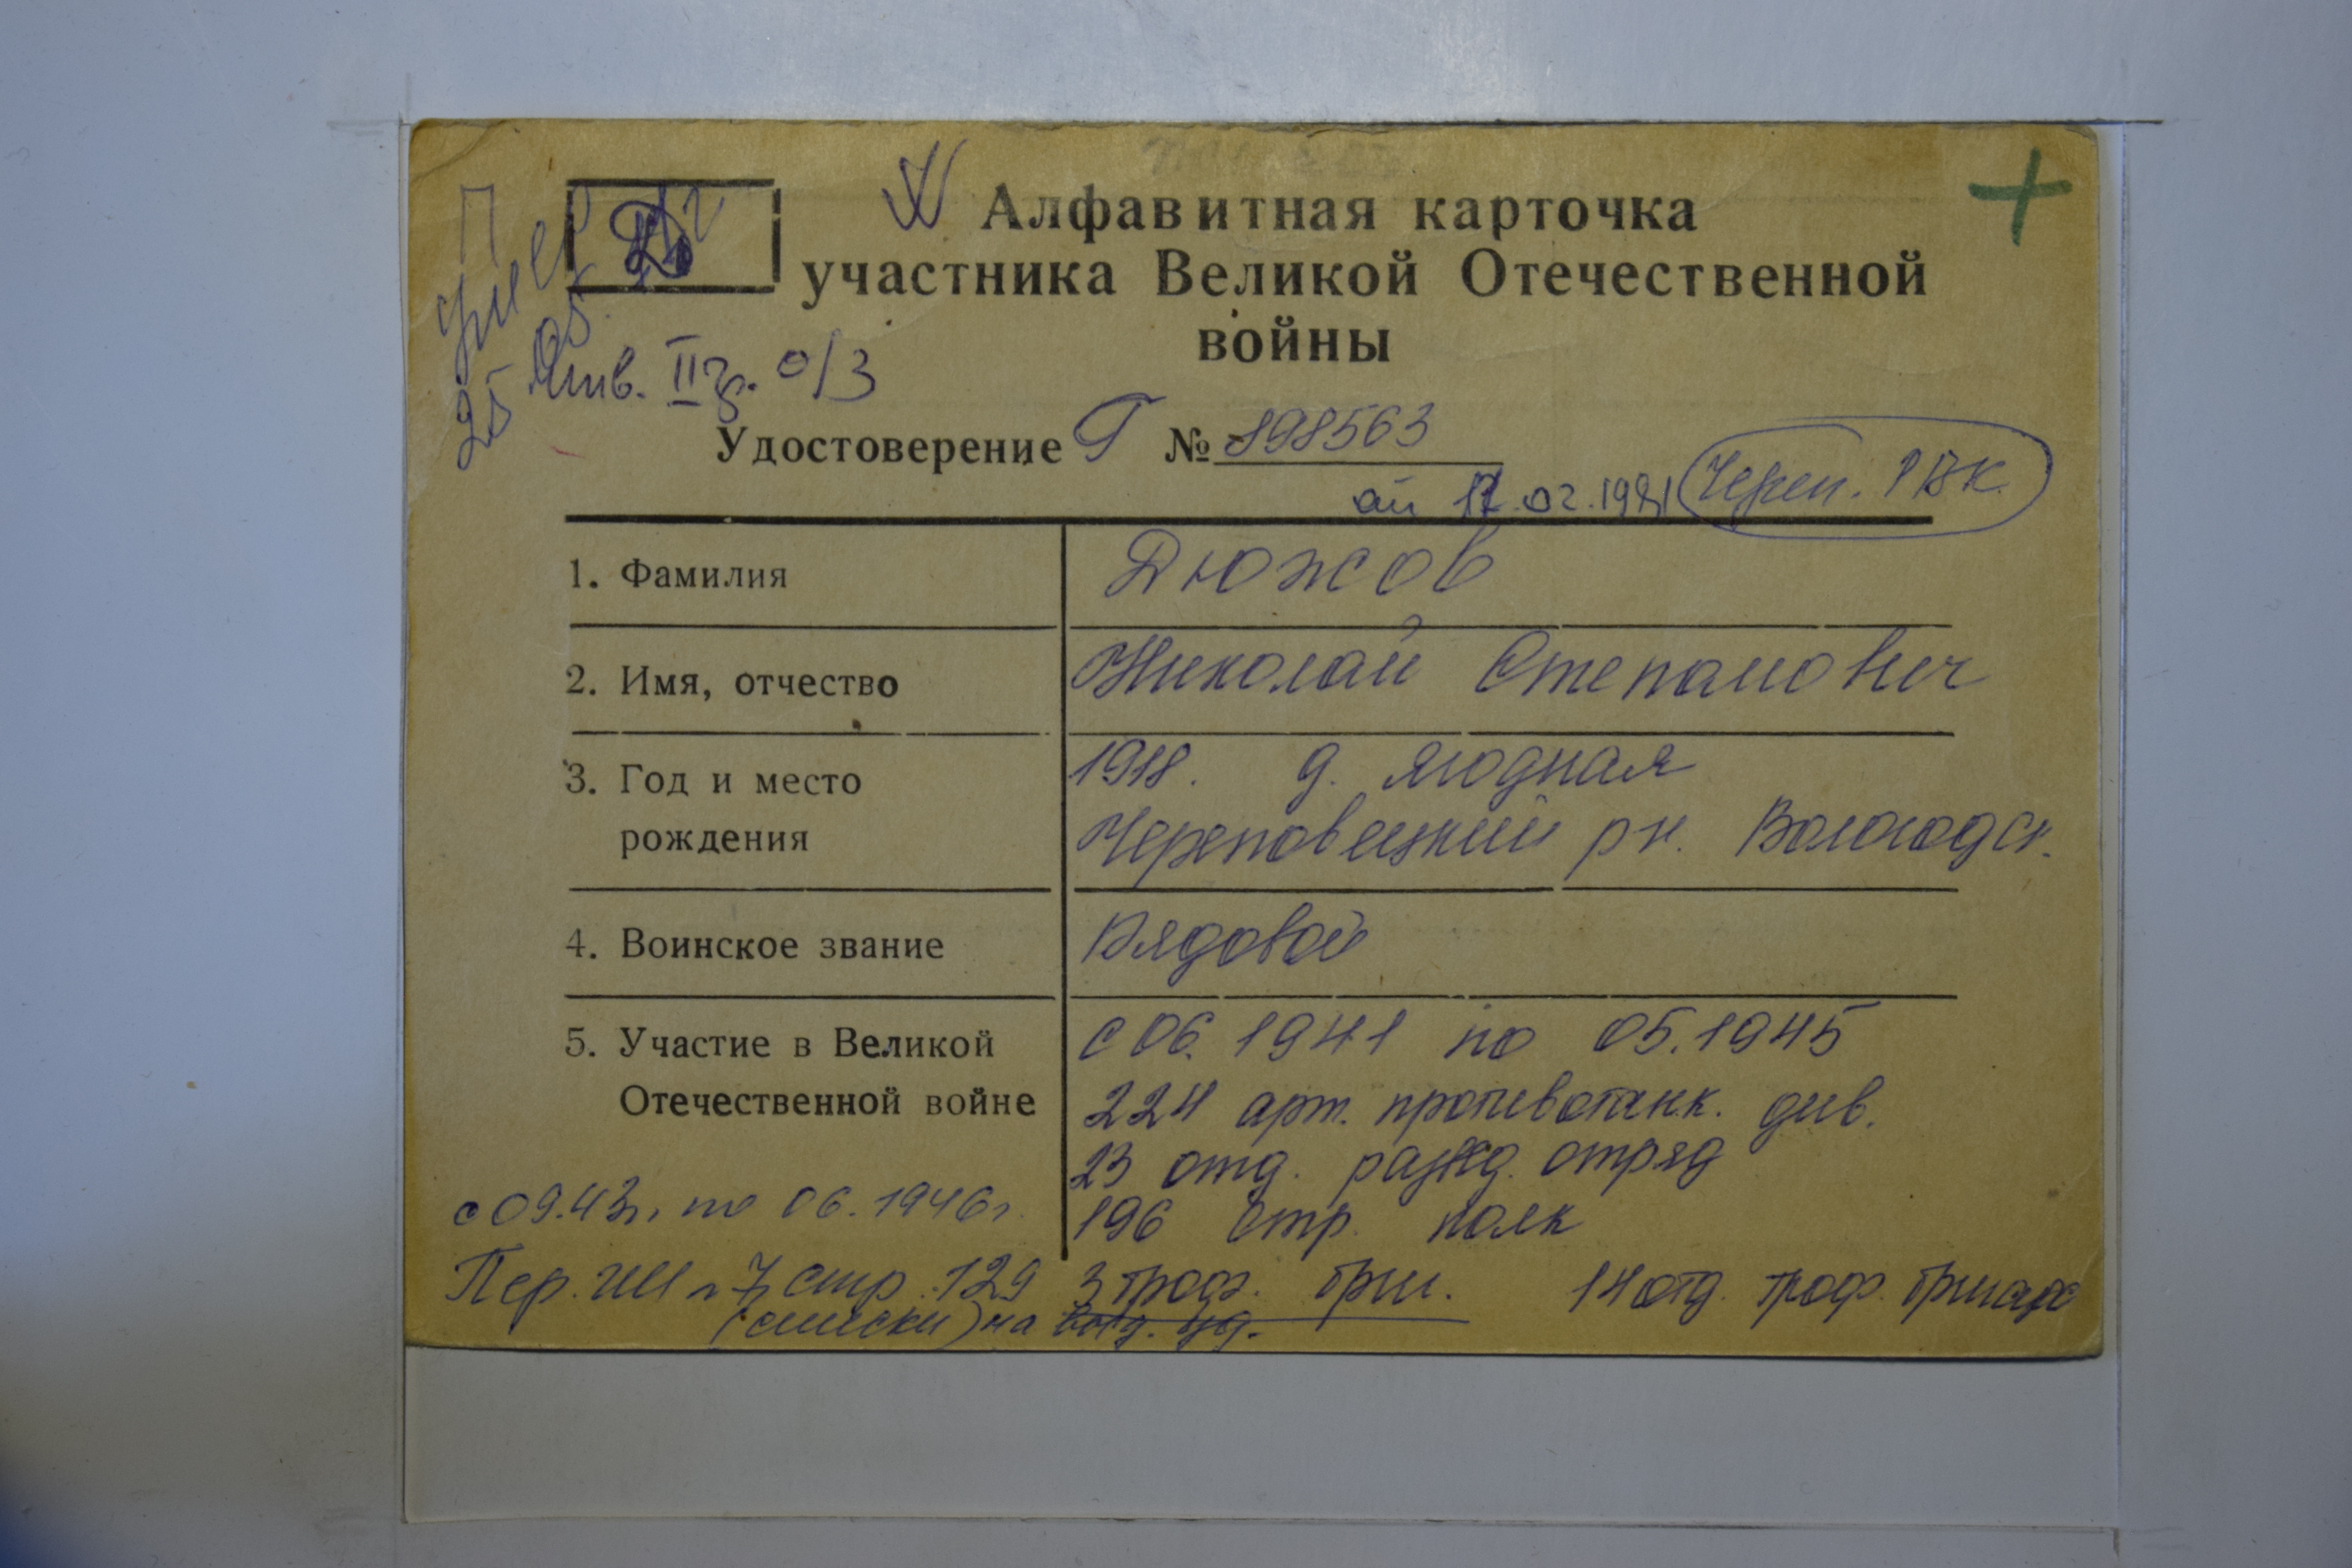 Д
Алфавитная карточка
участника Великой Отечественной
войны
25 05.
инв. II гр. о/з
Удостоверение Г № 898563
от 17.02.1981 Череп. РВК
1. Фамилия Дюжов
2. Имя, отчество Николай Степанович
3. Год и место 1918. д. Ягодная
рождения Череповецкий рн. Вологодск.
4. Воинское звание Рядовой
5. Участие в Великой с 06. 1941 по 05.1945
Отечественной войне 224 арт. противотанк. див.
23 отд. развед. отряд
с 09.43г. по 06.1946г. 196 стр. полк
Пер. 7 стр. 129 3 троф. бриг. 14 отд. троф. бригада
(списки) на